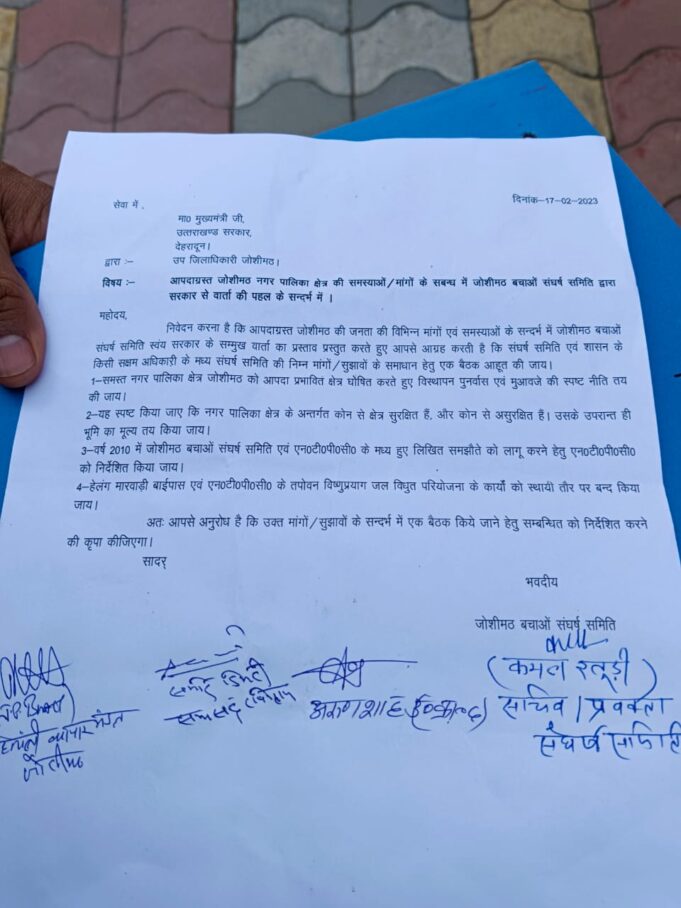 सेवा में ,
दिनांक–17–02–2023
मा0 मुख्यमंत्री जी,
उत्तराखण्ड सरकार,
देहरादून।
द्वारा :– उप जिलाधिकारी जोशीमठ।
विषय :– आपदाग्रस्त जोशीमठ नगर पालिका क्षेत्र की समस्याओं/मांगों के सबन्ध में जोशीमठ बचाओं संघर्ष समिति द्वारा
सरकार से वार्ता की पहल के सन्दर्भ में ।
महोदय,
निवेदन करना है कि आपदाग्रस्त जोशीमठ की जनता की विभिन्न मांगों एवं समस्याओं के सन्दर्भ में जोशीमठ बचाओं
संघर्ष समिति स्वंय सरकार के सम्मुख वार्ता का प्रस्ताव प्रस्तुत करते हुए आपसे आग्रह करती है कि संघर्ष समिति एवं शासन के
किसी सक्षम अधिकारी के मध्य संघर्ष समिति की निम्न मांगों/सुझावों के समाधान हेतु एक बैठक आहूत की जाय।
1–समस्त नगर पालिका क्षेत्र जोशीमठ को आपदा प्रभावित क्षेत्र घोषित करते हुए विस्थापन पुनर्वास एवं मुआवजे की स्पष्ट नीति तय
की जाय।
2–यह स्पष्ट किया जाए कि नगर पालिका क्षेत्र के अन्तर्गत कोन से क्षेत्र सुरक्षित हैं, और कोन से असुरक्षित हैं। उसके उपरान्त ही
भूमि का मूल्य तय किया जाय।
3–वर्ष 2010 में जोशीमठ बचाओं संघर्ष समिति एवं एन0टी0पी0सी0 के मध्य हुए लिखित समझौते को लागू करने हेतु एन0टी0पी0सी0
को निर्देशित किया जाय।
4–हेलंग मारवाड़ी बाईपास एवं एन0टी0पी0सी0 के तपोवन विष्णुप्रयाग जल विधुत परियोजना के कार्यों को स्थायी तौर पर बन्द किया
जाय।
अतः आपसे अनुरोध है कि उक्त मांगों/सुझावों के सन्दर्भ में एक बैठक किये जाने हेतु सम्बन्धित को निर्देशित करने
की कृपा कीजिएगा।
सादर्
भवदीय
जोशीमठ बचाओं संघर्ष समिति
(कमल रतूड़ी)
सचिव/प्रवक्ता
संघर्ष समिति
व्यापार मंडल